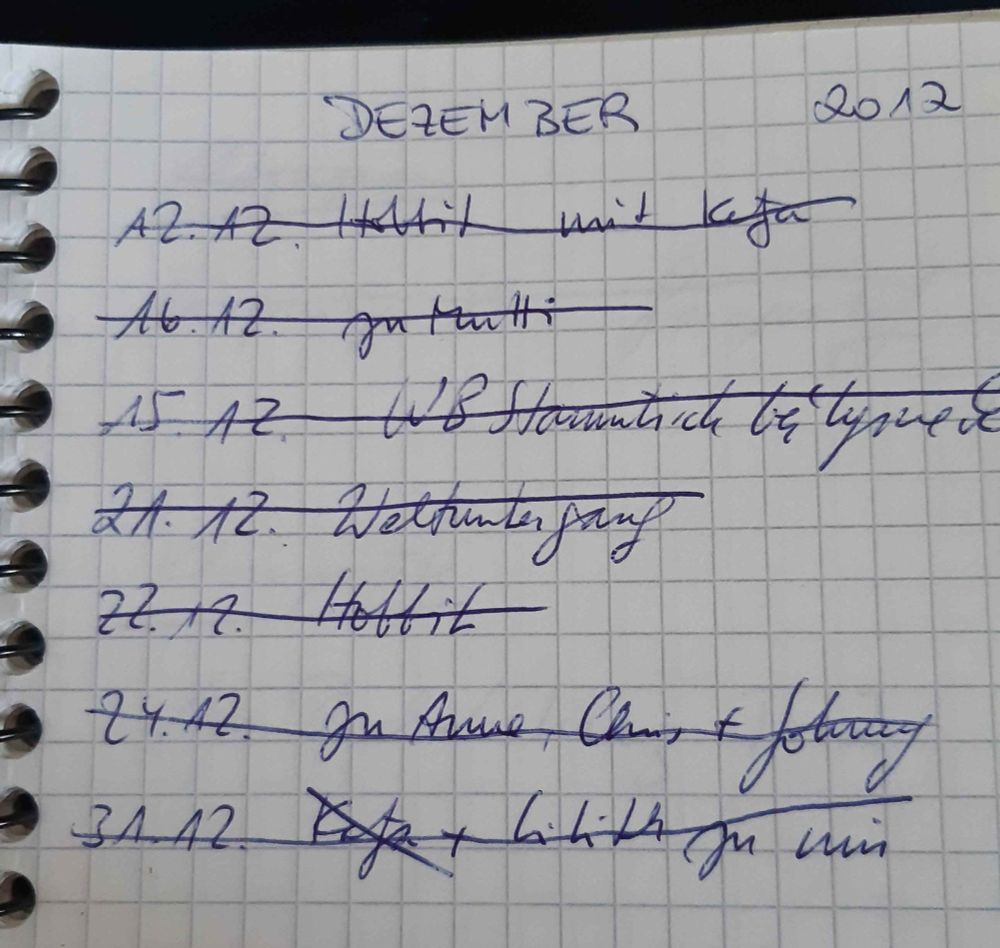 DEZEMBER 2012
12.12. Hobbit mit Kefa
16.12. zu Mutti
15.12. WB Stammtisch bei
21.12. Weltuntergang
22.12. Hobbit
24.12. zu Anne, Chris + Johnny
31.12. Kefa + Lilith zu mir